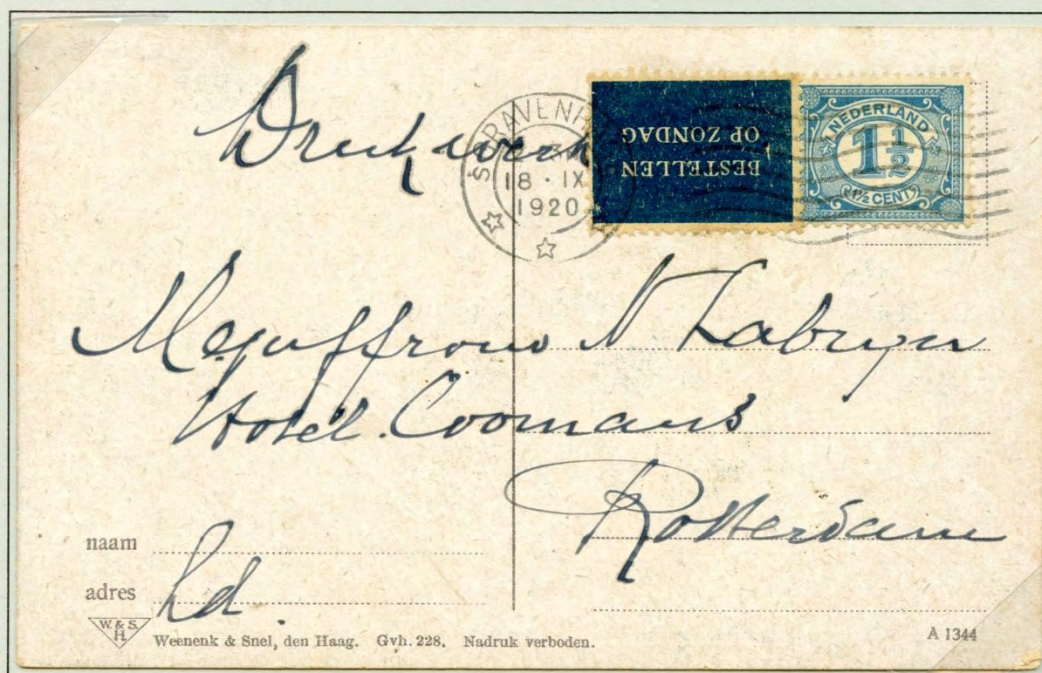 Drukwerk
'S GRAVENH
18 · IX
1920
BESTELLEN
OP ZONDAG
NEDERLAND
1½
1½ CENT
Mejuffrouw N
Hotel Coomans
Rotterdam
naam
adres
W. & S.
H.
Weenenk & Snel, den Haag. Gvh. 228. Nadruk verboden.
A 1344